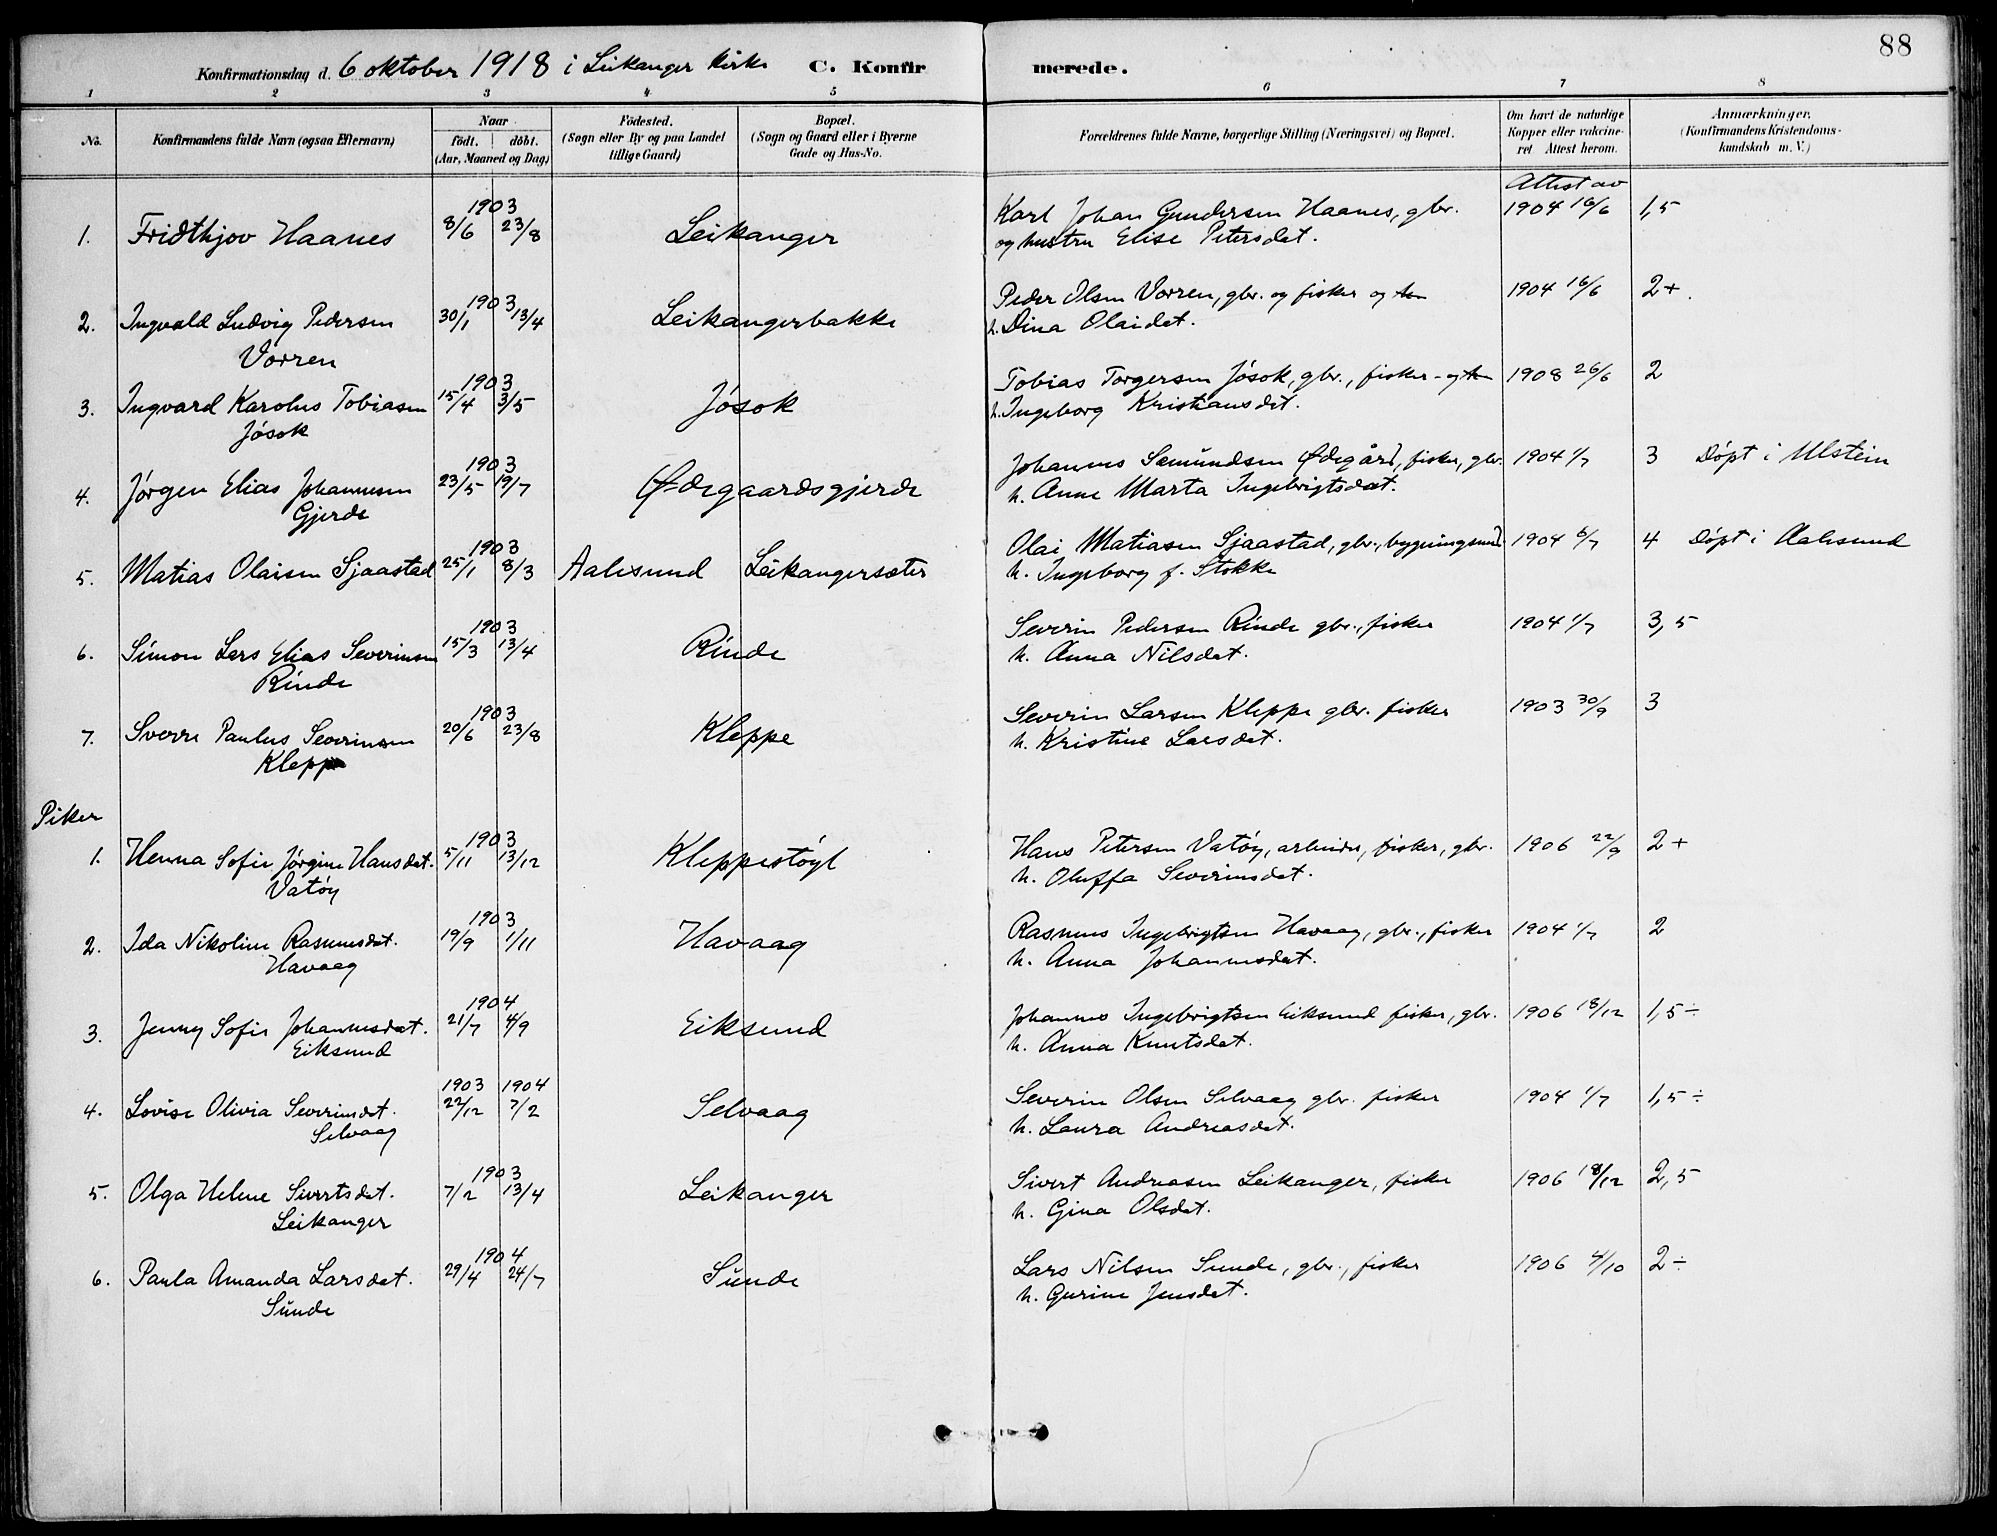 88
Konfirmationsdag d. 6 oktober 1918 i Leikanger kirke C. Konfirmerede.
1 2 3 4 5 6 7 8
No. Konfirmandens fulde Navn (ogsaa Efternavn) Naar födt. döbt. (Aar, Maaned og Dag) Födested. (Sogn eller By og paa Landet tillige Gaard) Bopæl. (Sogn og Gaard eller i Byerne Gade og Hus-No. Forældrenes fulde Navne, borgerlige Stilling (Næringsvei) og Bopæl. Om havt de naturlige Kopper eller vakcineret Attest herom. Anmærkninger. (Konfirmandens Kristendomskundskab m. V.)
Attest av
1903 Karl Johan Gundersen Haanes, gbr. 1904 16/6 1,5
1. Fridthjov Haanes 8/6 23/8 Leikanger og hustru Elise Petersdat.
1903 Peder Olsen Vorren, gbr. og fisker og 1904 16/6 2+.
2. Ingvald Ludvig Pedersen 30/1 13/4 Leikangerbakke h. Dina Olaidat.
Vorren
1903 Tobias Torgersen Jösok, gbr., fisker - og 1908 26/6 2
3. Ingvard Karolus Tobiasen 15/4 3/5 Jösok h. Ingeborg Kristiansdat.
Jösok
1903 Johannes Semundsen Ødegård, fisker, gbr. 1904 1/7 3 Döpt i Ulstein
4. Jörgen Elias Johannesen 23/5 19/7 Ødegaardsgjerde h. Anne Marta Ingebrigtsdat.
Gjerde
1903 Olai Matiasen Sjaastad, gbr., bygningsmd. 1904 6/7 4 Döpt i Aalesund
5. Matias Olaisen Sjaastad 25/1 8/3 Aalesund Leikangersæter h. Ingeborg f. Stokke
1903 Severin Pedersen Rinde gbr., fisker 1904 1/7 3,5
6. Simon Lars Elias Severinsen 15/3 13/4 Rinde h. Anna Nilsdat.
Rinde
1903 Severin Larsen Kleppe gbr. fisker 1903 30/9 3
7. Sverre Paulus Severinsen 20/6 23/8 Kleppe h. Kristine Larsdat.
Kleppe
Piker
1903 Hans Petersen Vatöy, arbeider, fisker, gbr. 1906 22/9 2+
1. Henna Sofie Jörgine Hansdat. 5/11 13/12 Kleppestöyl h. Oluffa Severinsdat.
Vatöy
1903 Rasmus Ingebrigtsen Havaag, gbr., fisker 1904 1/7 2
2. Ida Nikoline Rasmusdat. 19/9 1/11 Havaag h. Anna Johannesdat.
Havaag
1904 Johannes Ingebrigtsen Eiksund fisker, gbr. 1906 18/12 1,5÷
3. Jenny Sofie Johannesdat. 21/7 4/9 Eiksund h. Anna Knutsdat.
Eiksund
1903 1904 Severin Olsen Selvaag gbr. fisker 1904 1/7 1,5÷
4. Lovise Olivia Severinsdat. 22/12 7/2 Selvaag h. Laura Andreasdat.
Selvaag
1903 Sivert Andreasen Leikanger, fisker 1906 18/12 2,5
5. Olga Helene Sivertsdat. 7/2 13/4 Leikanger h. Gina Olsdat.
Leikanger
1904 Lars Nilsen Sunde, gbr., fisker 1906 4/10 2÷
6. Paula Amanda Larsdat. 29/4 24/7 Sunde h. Gurine Jensdat.
Sunde